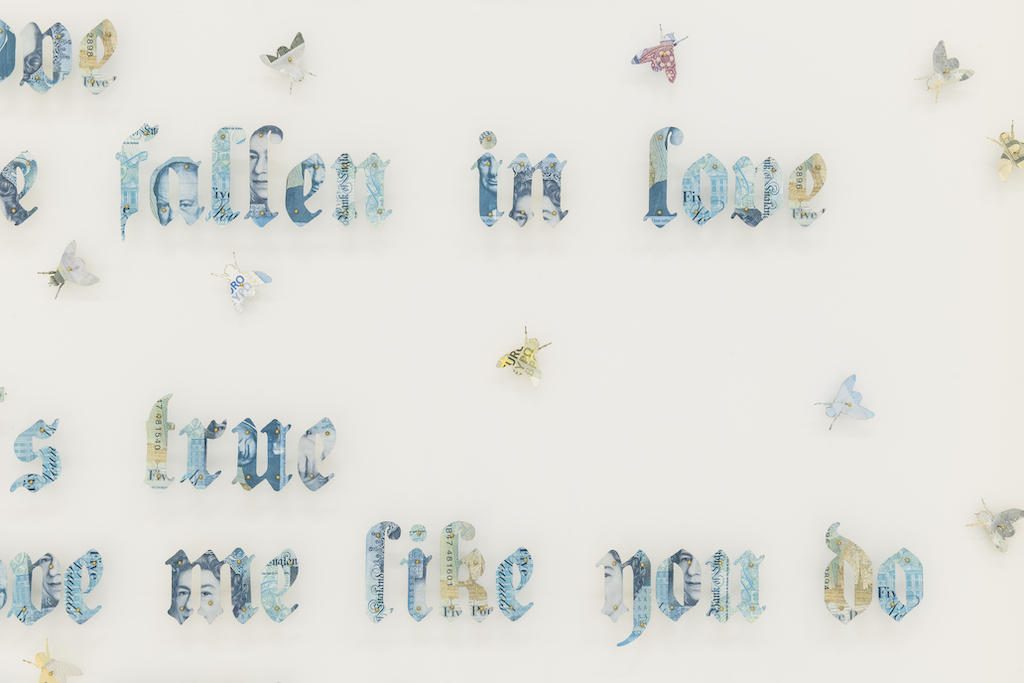 ove
e fallen in love
s true
ove me like you do